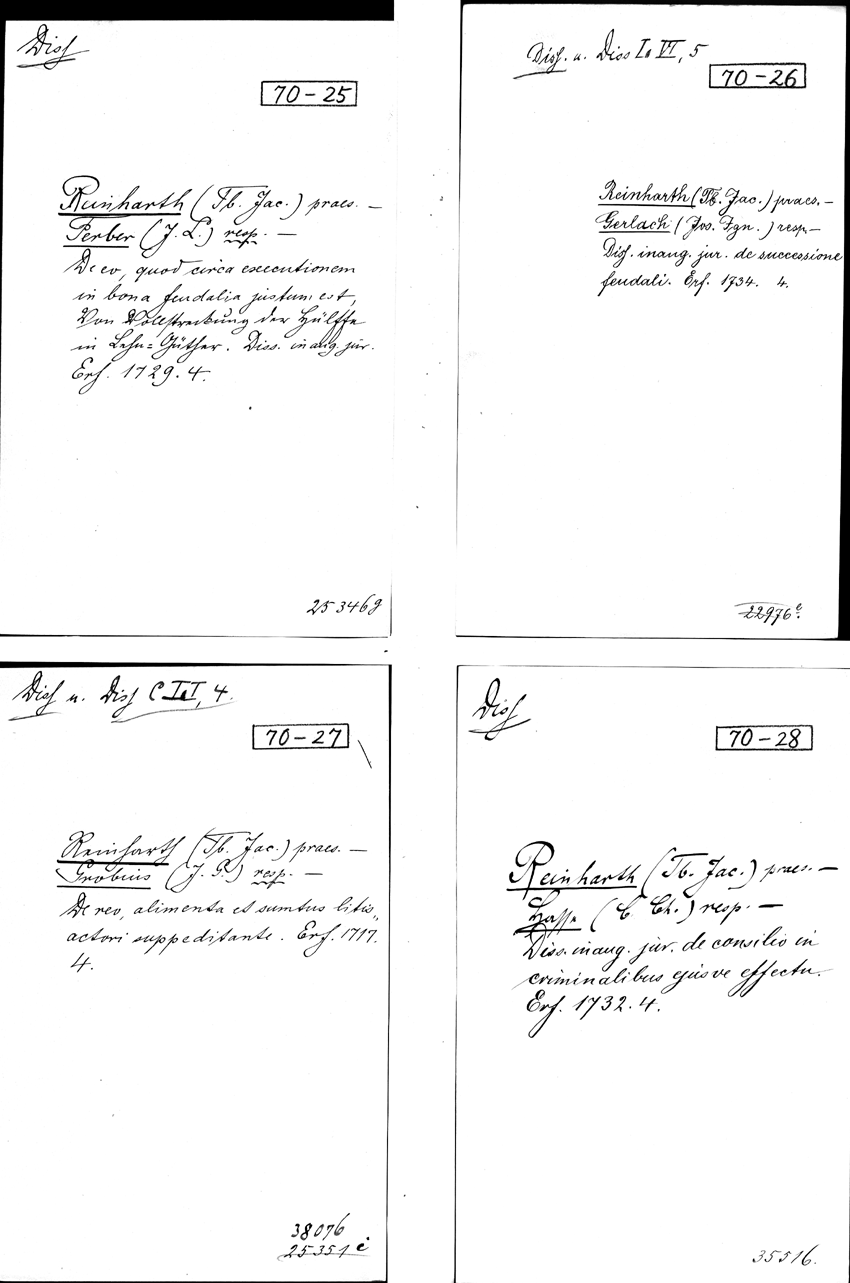 Diss
70-25
Reinharth (Tb. Jac.) praes. —
Ferber (J. L.) resp. —
De eo, quod circa executionem
in bona feudalia justum est,
Von Vollstreckung der Hülffe
in Lehn=Güther. Diss. inaug. jur.
Erf. 1729. 4.
25346g
Diss. u. Diss I. VI, 5
70-26
Reinharth (Tb. Jac.) praes. —
Gerlach (Jos. Ign.) resp. —
Diss. inaug. jur. de successione
feudali. Erf. 1734. 4.
22976e.
Diss u. Diss C I, 4.
70-27
Reinharth (Tb. Jac.) praes. —
Grobius (J. G.) resp. —
De reo, alimenta et sumtus litis,
actori suppeditante. Erf. 1717.
4.
38076
25351 c
Diss
70-28
Reinharth (Tb. Jac.) praes. —
Hasse (C. Ch.) resp. —
Diss. inaug. jur. de consilio in
criminalibus ejusve effectu.
Erf. 1732. 4.
35516.